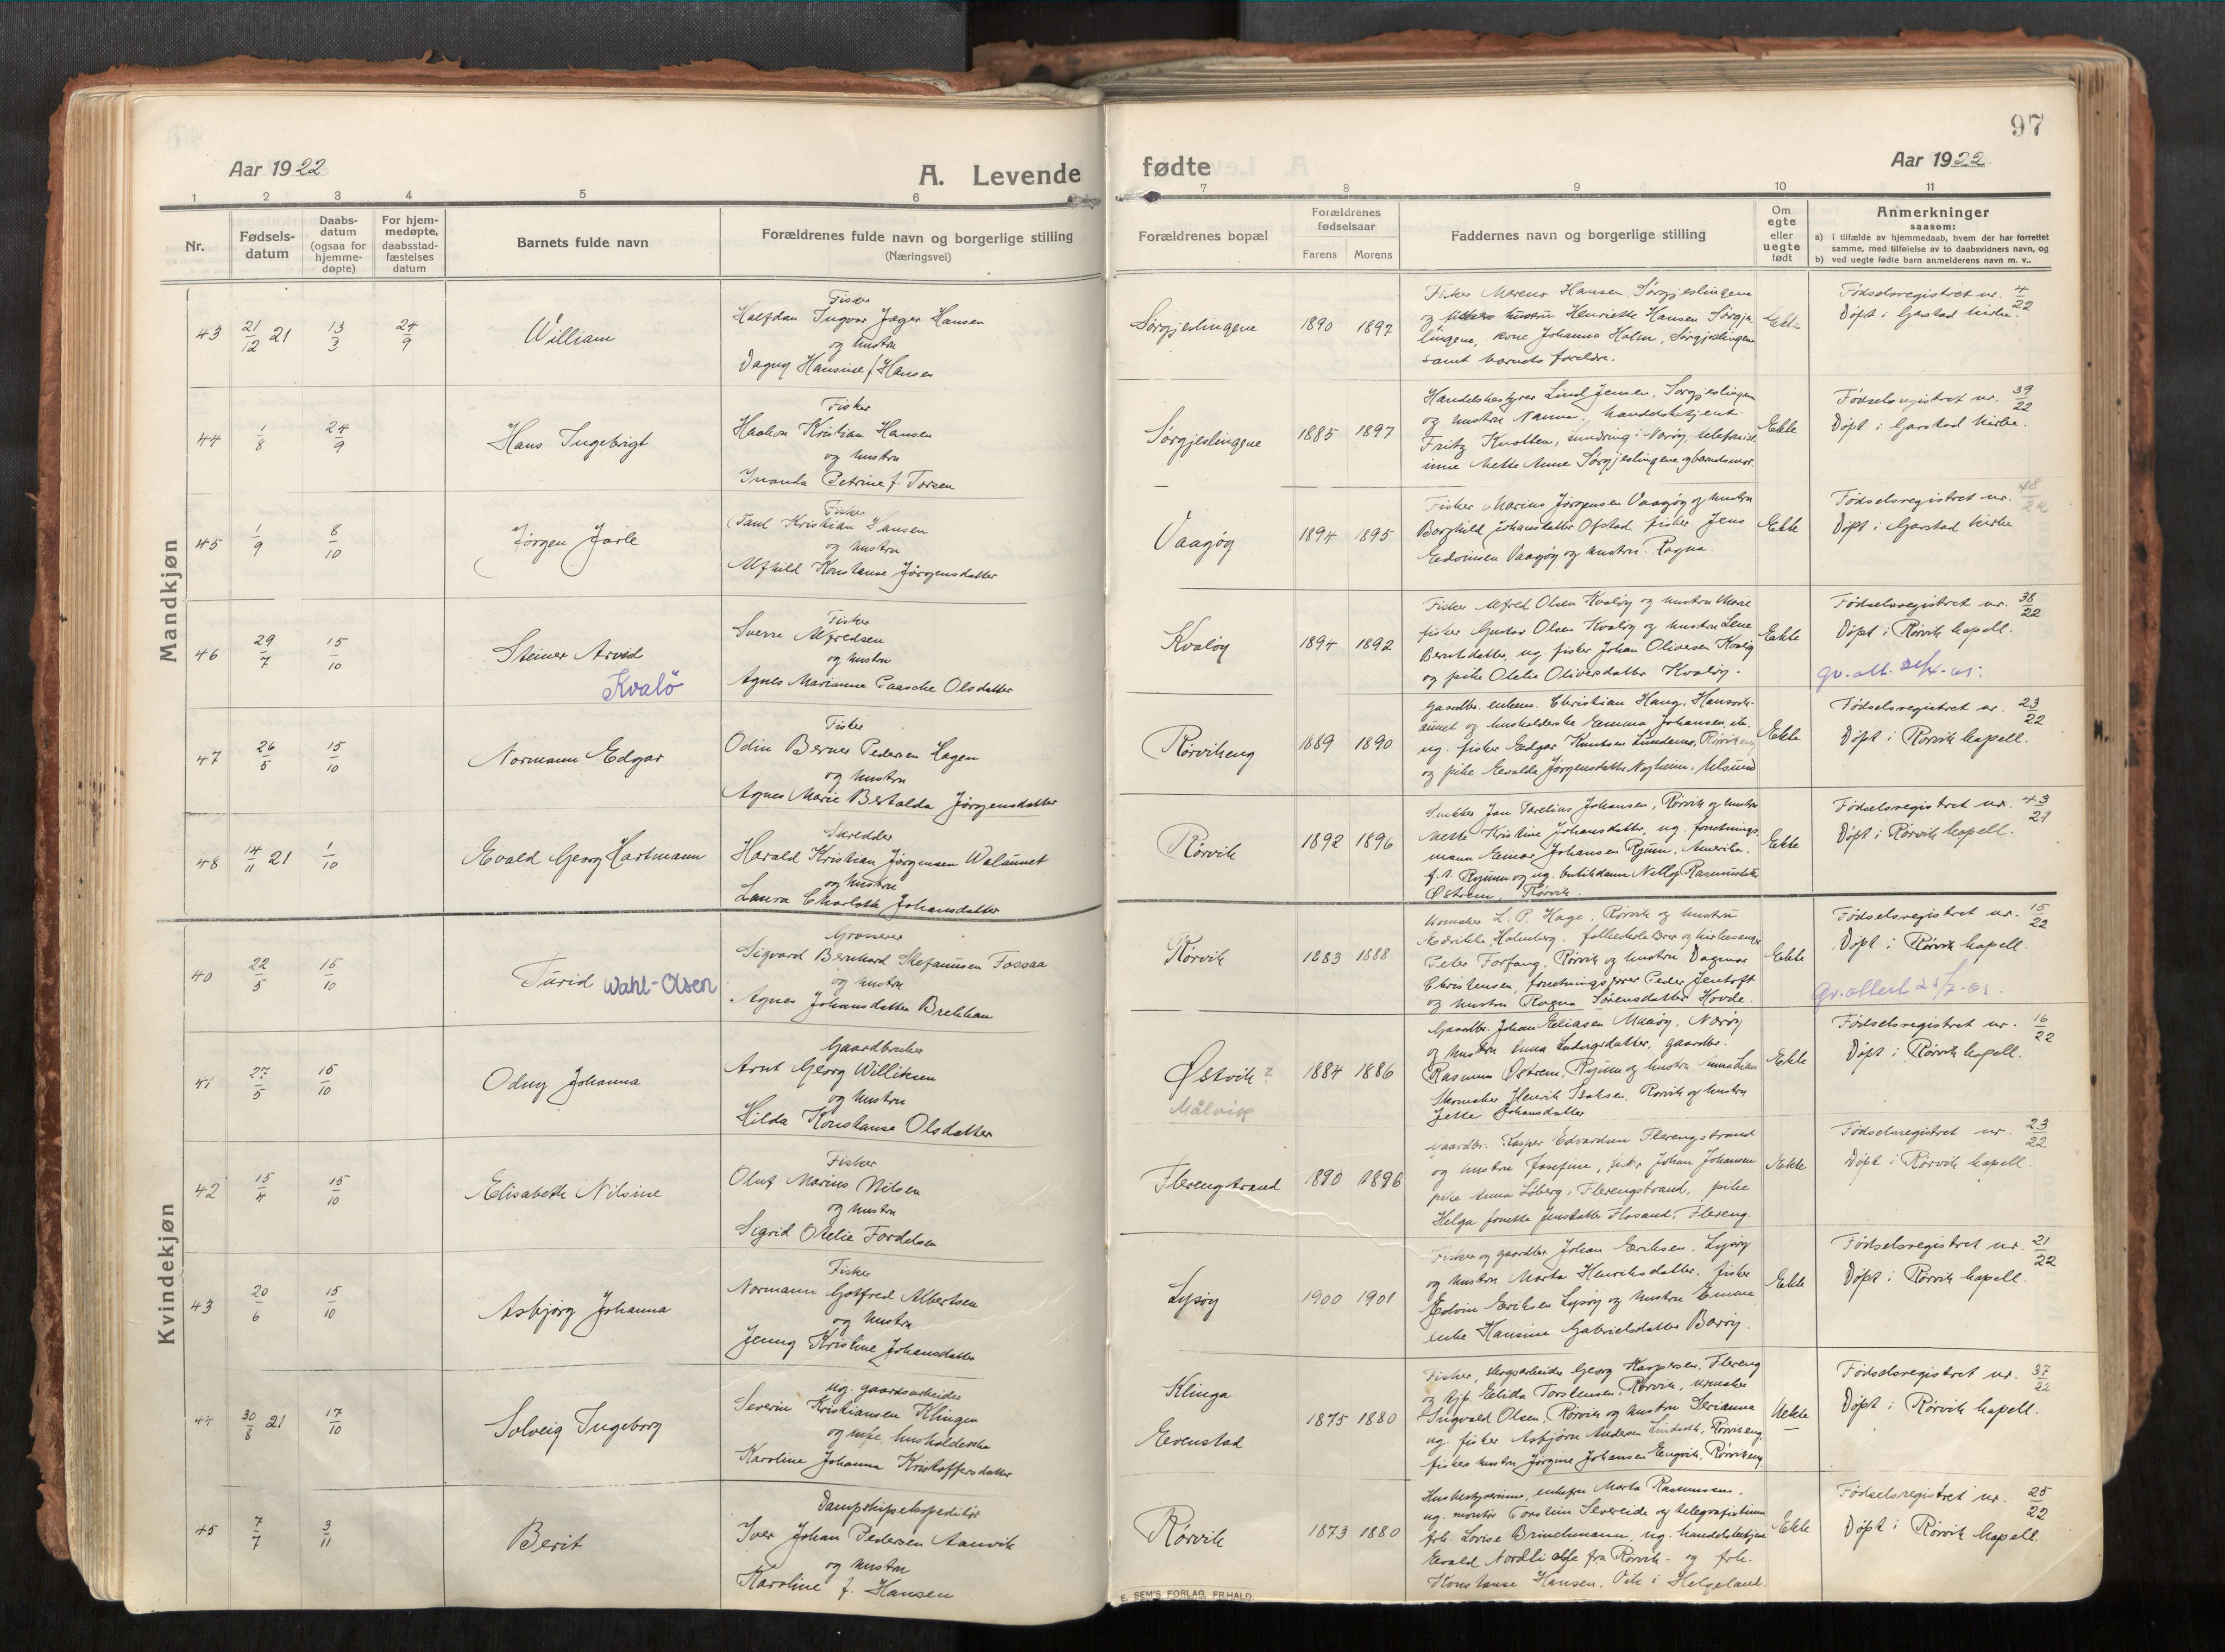 97
Aar 1922
A. Levende
fødte
Aar 1922
1 2 3 4 5 6
7 8 9 10 11
Nr.
Fødsels-
datum
Daabs-
datum
(ogsaa for
hjemme-
døpte)
For hjem-
medøpte,
daabsstad-
fæstelses
datum
Barnets fulde navn
Forældrenes fulde navn og borgerlige stilling
(Næringsvei)
Forældrenes bopæl
Forældrenes
fødselsaar
Farens Morens
Faddernes navn og borgerlige stilling
Om
egte
eller
uegte
født
Anmerkninger
saasom:
a) i tilfælde av hjemmedaab, hvem der har forrettet
samme, med tilføielse av to daabsvidners navn, og
b) ved uegte fødte barn anmelderens navn m. v..
Mandkjøn
43 21/12 21 13/3 24/9 William
Fisker
Halfdan Ingvar Jæger Hansen
og hustru
Dagny Hansine f. Hansen
Sørgjeslingene 1890 1897
Fisker Marens Hansen, Sørgjeslingene
og hustru Henriette Hansen Sørgje-
lingene, kone Johanna Holm, Sørgjeslingene
samt barnets forældre.
Ekte
Fødselsregistret nr. 4/22
Døpt i Garstad kirke.
44 1/8 24/9 Hans Ingebrigt
Fisker
Haakon Kristian Hansen
og hustru
Petrine f. Torsen
Sørgjeslingene 1885 1897
Handelsbestyrer Lind Jensen, Sørgjeslingen
og hustru Nanna, handelsbetjent
Fritz Knotten, i Nærøy, telefonist-
inne Mette Anne Sørgjeslingene og barnets mor.
Ekte
Fødselsregistret nr. 39/22
Døpt i Garstad kirke.
45 1/9 8/10 Jørgen Jarle
Fisker
Paul Kristian Hansen
og hustru
Alfhild Konstanse Jørgensdatter
Vaagøy 1894 1895
Fisker Marius Jørgensen Vaagøy og hustru
Borghild Johansdatter Ofstad, fisker Jens
Edvinsen Vaagøy og hustru Ragna.
Ekte
Fødselsregistret nr. 48/22
Døpt i Garstad kirke
46 29/7 15/10 Steinar Arvid
Kvalö
Fisker
Sverre Alfredsen
og hustru
Agnes Marianne Paasche Olsdatter
Kvaløy 1894 1892
Fisker Alfred Olsen Kvaløy og hustru Marie
fisker Gustav Olsen Kvaløy og hustru Lene
Berntsdatter, ug. fisker Johan Oliversen Kvaløy
og pike Otelie Oliversdatter Kvaløy.
Ekte
Fødselsregistret nr. 38/22
Døpt i Rørvik kapell.
47 26/5 15/10 Normann Edgar
Fisker
Odin Berner Pedersen Hagen
og hustru
Agnes Marie Bertalda Jørgensdatter
Rørvikeng 1889 1890
Gaardbr. enkem. Christian Haug, Hansvik-
aunet og husholderske Emma Johansen, ib.
ug. fisker Edgar Knutsen Lindseth, Rørvikeng
og pike Evalda Jørgensdatter Nygheim, Ulsund
Ekte
Fødselsregistret nr. 23/22
Døpt i Rørvik kapell.
48 14/11 21 1/10 Evald Georg Hartmann
Skredder
Harald Kristian Jørgensen Walaunet
og hustru
Laura Charlotte Johansdatter
Rørvik 1892 1896
Snekker Jon Parelius Johansen, Rørvik og hustru
Mette Kristine Johansdatter, ug. forretnings-
mann Einar Johansen Ryum, Amerika,
f. t. Ryum og ug. butikdame Nelly Rasmusdatter
Østrem, Rørvik.
Ekte
Fødselsregistret nr. 43/21
Døpt i Rørvik kapell.
Kvindekjøn
40 22/5 15/10 Turid Wahl-Olsen
Grosserer
Sigvard Bernhard Stefanussen Fossaa
og hustru
Agnes Johansdatter Brekkan
Rørvik 1883 1888
Urmaker L. P. Hage, Rørvik og hustru
Holmberg, folkeskolelærer og kirkesanger
Peter Forfang, Rørvik og hustru Dagmar
Christensen, forretningsfører Peder Jentoft
og hustru Ragna Sørensdatter Hovde.
Ekte
Fødselsregistret nr. 15/22
Døpt i Rørvik kapell.
41 27/5 15/10 Odny Johanna
Gaardbruker
Arnt Georg Williksen
og hustru
Hilda Konstanse Olsdatter
Østvik?
Målvik
1884 1886
Gaardbr. Johan Eliasen Nærøy
og hustru Anna Ludvigsdatter, gaardbr.
Rasmus Østrem, Ryum og hustru
Skomaker Henrik Isaksen, Rørvik og hustru
Jette Johansdatter
Ekte
Fødselsregistret nr. 16/22
Døpt i Rørvik kapell.
42 15/4 15/10 Elisabeth Nilsine
Fisker
Oluf Marius Nilsen
og hustru
Sigrid Otelie Fordelsen
Flerengstrand 1890 1896
Gaardbr. Kasper Edvardsen Flerengstrand
og hustru Josefine, fisker Johan Johansen
pike Anna Løberg, Flerengstrand, pike
Helga Jensdatter Flosand, Flereng.
Ekte
Fødselsregistret nr. 23/22
Døpt i Rørvik kapell.
43 20/6 15/10 Asbjørg Johanna
Fisker
Normann Gotfred Albertsen
og hustru
Jenny Kristine Johansdatter
Lysøy 1900 1901
Fisker og gaardbr. Johan Eriksen, Lysøy
og hustru Marta Henriksdatter, fisker
Edvin Eriksen Lysøy og hustru Emma
enke Hansine Gabrielsdatter Borøy.
Ekte
Fødselsregistret nr. 21/22
Døpt i Rørvik kapell.
44 30/8 21 17/10 Solveig Ingeborg
Ug. gaardsarbeider
Severin Kristiansen Klingen
og husholderske
Karoline Johanna Kristoffersdatter
Klinga
Evenstad
1875 1880
Fisker, Georg Kaspersen, Flereng
og hjp. Elida Torstensen, Rørvik, urmaker
Ingvald Olsen, Rørvik og hustru Serianna
ug. fisker Asbjørn Andersen Lindseth, Rørvikeng,
fiskers hustru Jørgine Johansen Engvik, Rørvikeng.
Uekte
Fødselsregistret nr. 37/22
Døpt i Rørvik kapell.
45 7/7 3/11 Berit
Dampskipsekspeditør
Iver Johan Pedersen Aanvik
og hustru
Karoline f. Hansen
Rørvik 1873 1880
Husbestyrerinne, enkefru Marta Rasmussen,
ug. montør Torstein Severeide og telegrafistinne
frk. Lovise Brinchmann, ug. handelsbetjent
Evald Nordli alle fra Rørvik - og frk.
Konstanse Hansen, Vik i Helgeland.
Ekte
Fødselsregistret nr. 25/22
Døpt i Rørvik kapell.
E. SEM'S FORLAG, FR.HALD.